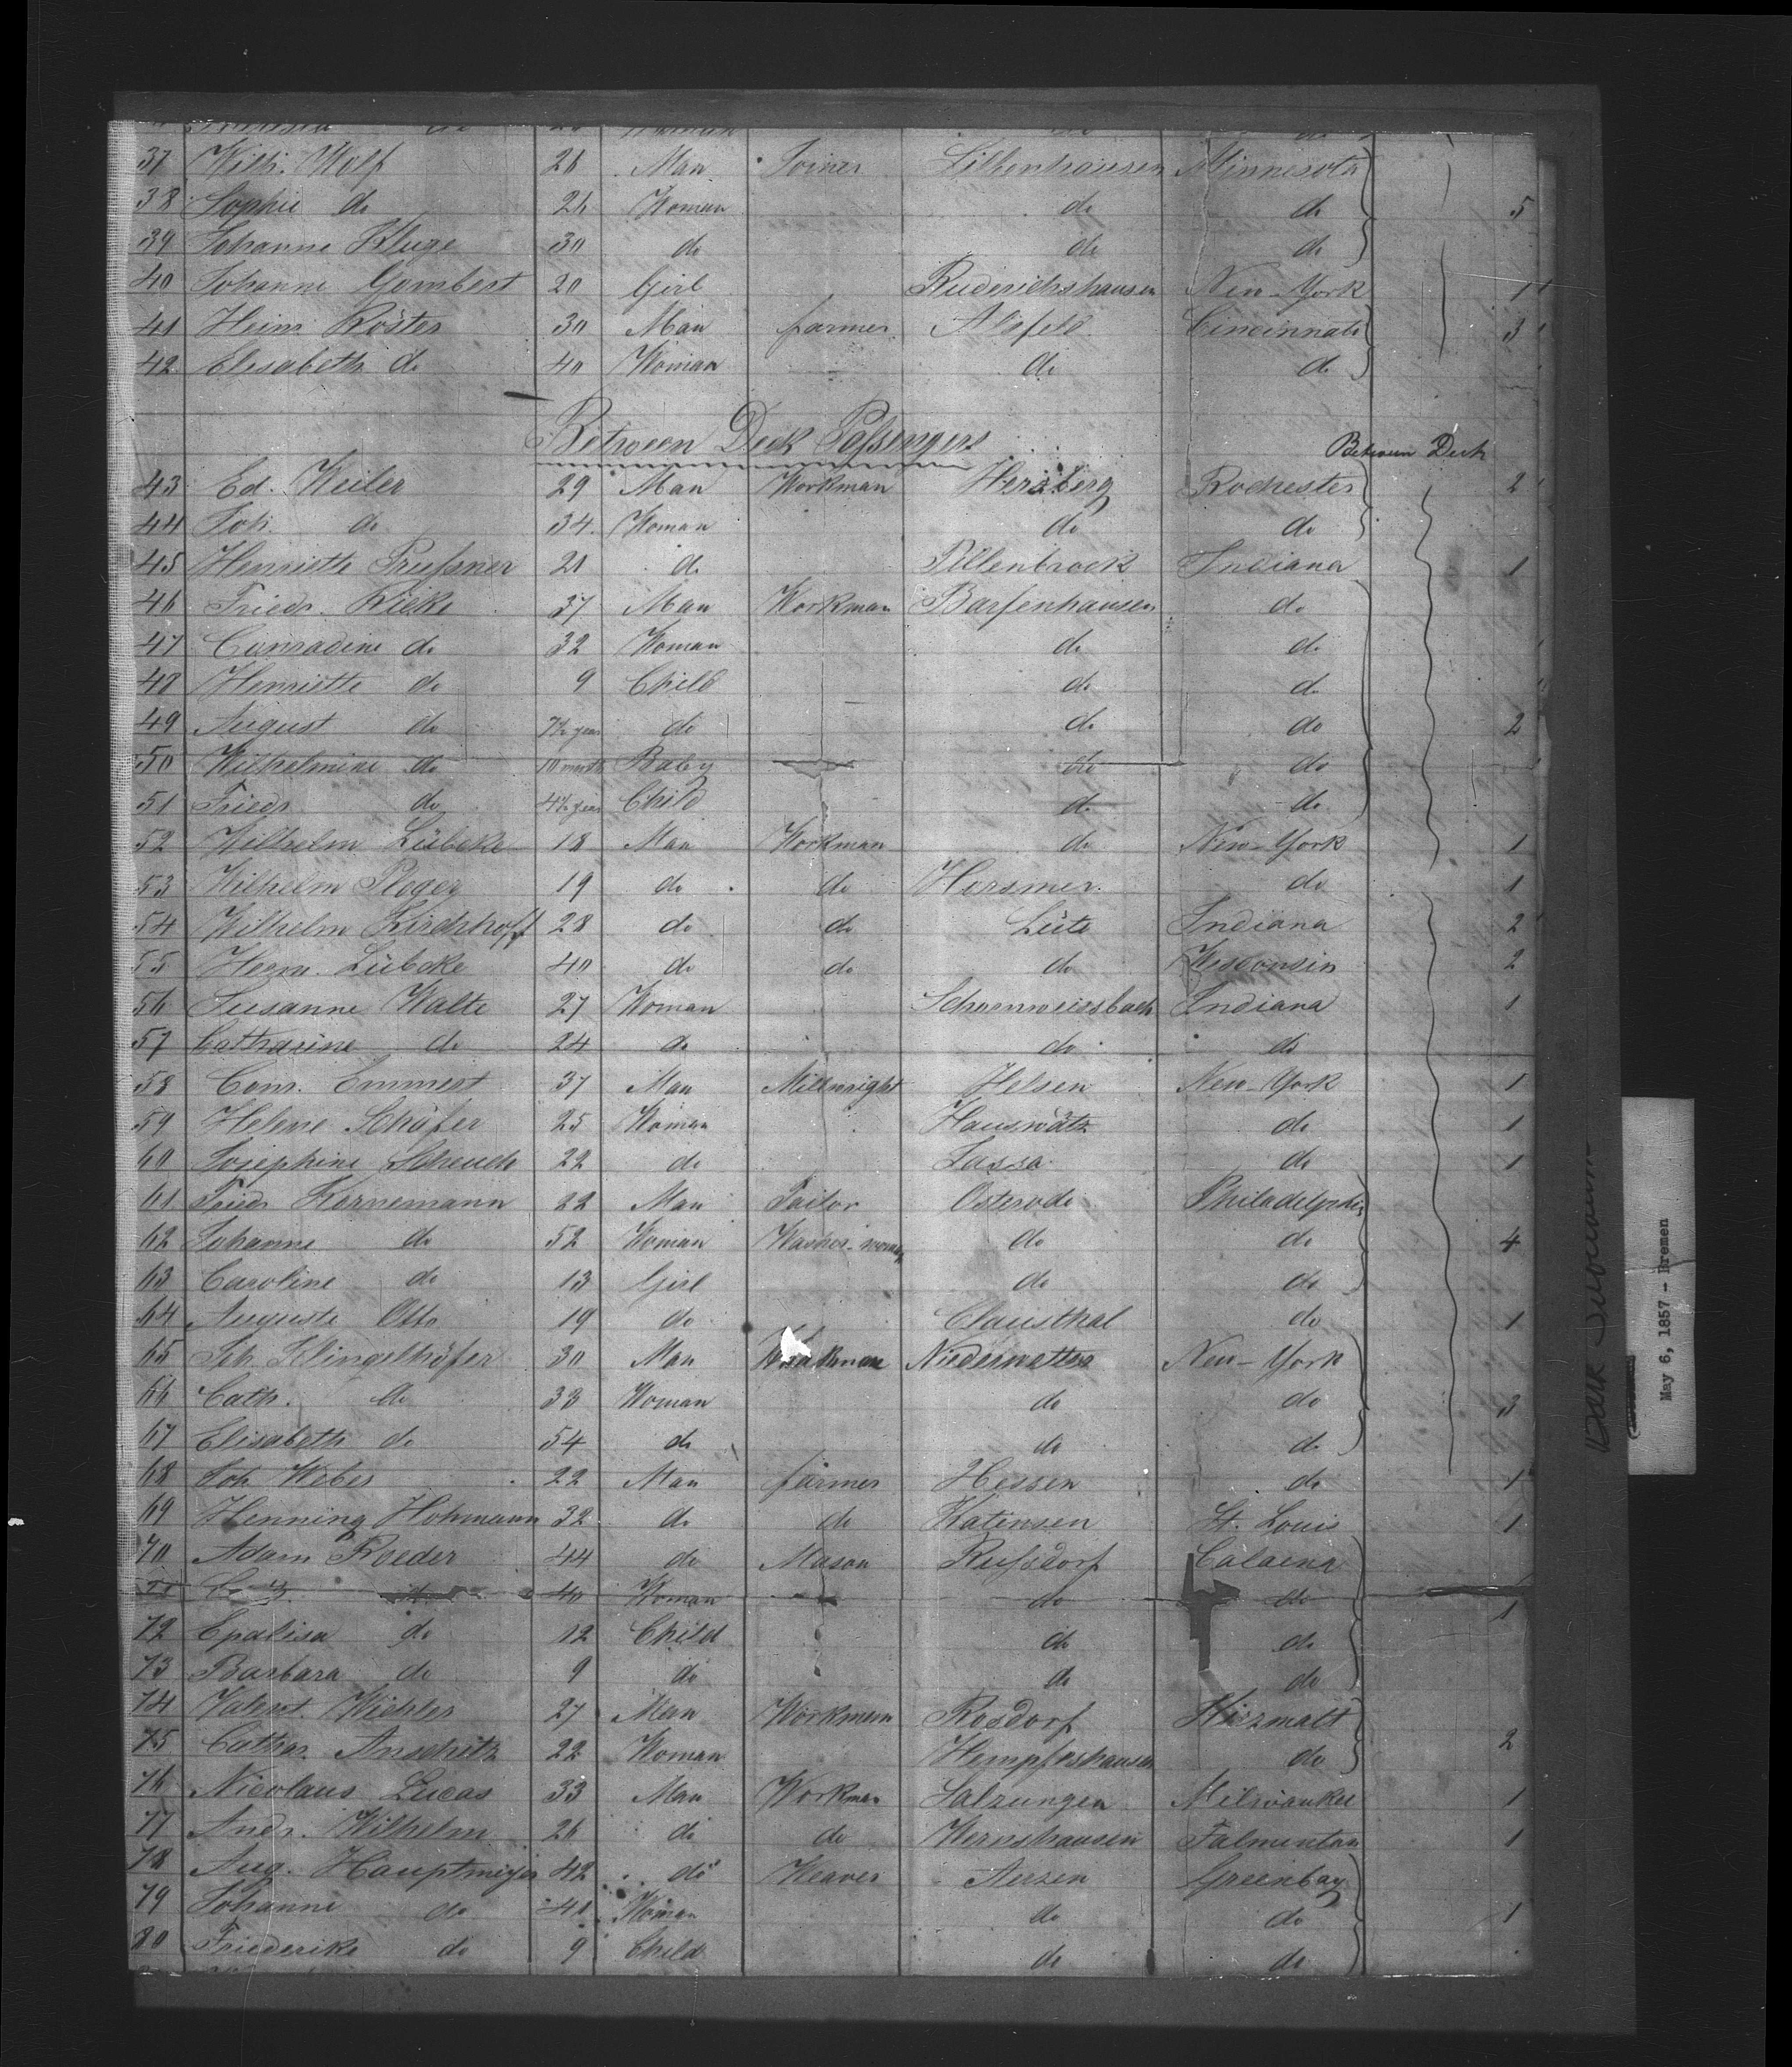 37 Wilh. Wolf 26 Man Joiner Lithenhausen Minnesota
38 Sophie do 26 Woman do do 5
39 Johanne Kluge 30 do do do
40 Johanne Gombert 20 Girl Ruderichshausen New-York 1
41 Heinr. Köster 30 Man farmer Alsfeld Cincinnati 3
42 Elisabeth do 40 Woman do do
Between Deck Passengers
Between Deck
43 Ed. Weiler 29 Man Workman Herzberg Rochester 2
44 Joh. do 34 Woman do do
45 Henriette Prussner 21 do Pillenbrock Indiana 1
46 Friedr. Rieke 37 Man Workman Barsenhausen do
47 Conradine do 32 Woman do do
48 Henriette do 9 Child do do
49 August do 7½ year do do do 2
50 Wilhelmine do 10 month Baby do do
51 Friedr do 4½ year Child do do
52 Wilhelm Lübcke 18 Man Workman do New-York 1
53 Wilhelm Ploger 19 do do Horsmer do 1
54 Wilhelm Kirchhoff 28 do do Lüte Indiana 2
55 Herm. Lübcke 40 do do do Wisconsin 2
56 Susanne Walte 27 Woman Indiana 1
57 Catharine do 24 do do do
58 Conr. Emmert 37 Man Millwright Helsen New-York 1
59 Helene Schäfer 25 Woman Hauswätz do 1
60 Josephine Scheuch 22 do Lassa do 1
61 Friedr Kornemann 22 Man Tailor Osterode Philadelphia
62 Johanne do 52 Woman Washer-woman do do 4
63 Caroline do 13 Girl do do
64 Auguste Otto 19 do Clausthal do 1
65 Joh Klingelhöfer 30 Man Workman Niederwattra New-York
66 Cath. do 33 Woman do do 3
67 Elisabeth do 54 do do do
68 Joh Weber 22 Man farmer Hessen do 1
69 Henning Hohmann 32 do do Katensen St. Louis 1
70 Adam Roeder 44 do Mason Russdorf Calaena
71 do 40 Woman do do
72 do 12 Child do do 1
73 Barbara do 9 do do do
74 Valent. Wichler 27 Man Workmann Rosdorf
75 Cathar. Anschitz 22 Woman Hempfershausen do 2
76 Nicolaus Lucas 33 Man Workman Salzungen Milwaukee 1
77 Andr. Wilhelm 26 do do Wernshausen Falmuntan 1
78 Aug. Hauptmeyer 42 do Weaver Aerzen Greenbay
79 Johanne do 41 Woman do do 1
80 Friederike do 9 Child do do
May 6, 1857 - Bremen